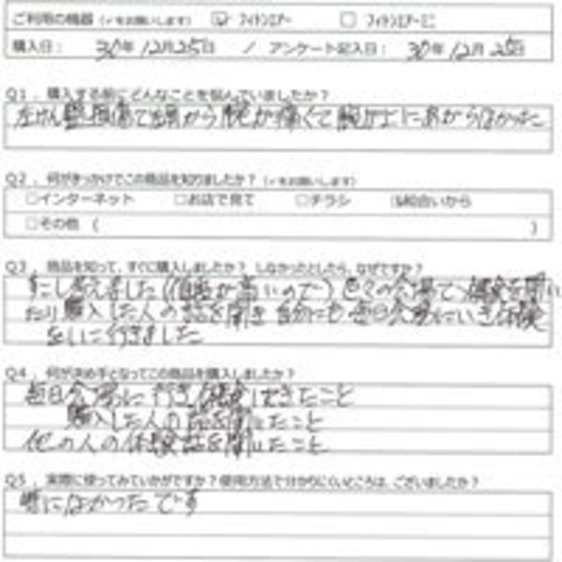 ご利用の機器 (✓をお願いします) ☑ フィトンエアー □ フィトンエアーミニ
購入日: 30年 12月25日 / アンケート記入日: 30年 12月 25日
Q1. 購入する前にどんなことを悩んでいましたか?
左けん 損傷で左肩から腕が痛くて腕が上にあがらなかった
Q2. 何がきっかけでこの商品を知りましたか? (✓をお願いします)
□インターネット □お店で見て □チラシ ☑知合いから
□その他 ( )
Q3. 商品を知って、すぐに購入しましたか? しなかったとしたら、なぜですか?
すこし考えました((値段が高いので) 色々の会場で、体験を聞い
たり購入した人の話を聞き 自分にも毎日会場にいき体験
をしに行きました
Q4. 何が決め手となってこの商品を購入しましたか?
毎日会場に行き体験できたこと
購入した人の話を聞いたこと
他の人の体験話を聞いたこと
Q5. 実際に使ってみていかがですか?使用方法で分かりにくいところは、ございましたか?
特になかったです